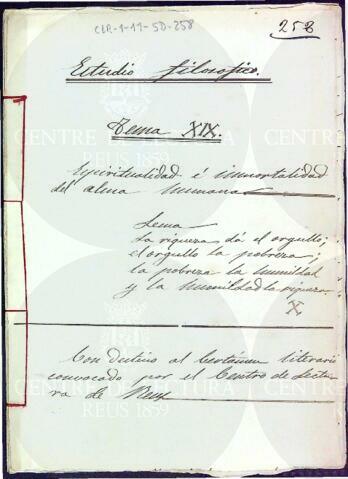 CLR-1-11-5D-258
258
Estudio filosofico.
Tema XIX.
Espiritualidad é inmortalidad
del alma humana
Lema
La riqueza dá el orgullo;
el orgullo la pobreza;
la pobreza la humildad
y la humildad la riqueza
X
Con destino al Certámen literario
convocado por el Centro de Lectu-
ra de Reus
CENTRE DE LECTURA
REUS 1859